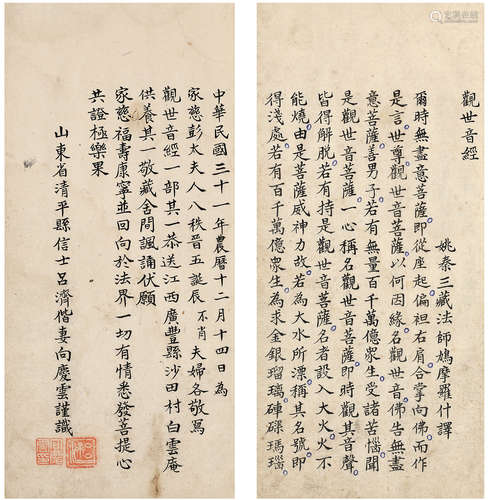 觀世音經
姚秦三藏法師鳩摩羅什譯
爾時無盡意菩薩即從座起偏袒右肩合掌向佛而作
是言世尊觀世音菩薩以何因緣名觀世音佛告無盡
意菩薩善男子若有無量百千萬億眾生受諸苦惱聞
是觀世音菩薩一心稱名觀世音菩薩即時觀其音聲
皆得解脫若有持是觀世音菩薩名者設入大火火不
能燒由是菩薩威神力故若為大水所漂稱其名號即
得淺處若有百千萬億眾生為求金銀瑠璃硨磲瑪瑙
中華民國三十一年農曆十二月十四日為
家慈彭太夫人八秩晉五誕辰不肖夫婦各敬寫
觀世音經一部其一恭送江西廣豐縣沙田村白雲庵
供養其一敬藏舍間諷誦伏願
家慈福壽康寧並回向於法界一切有情悉發菩提心
共證極樂果
山東省清平縣信士呂濟偕妻向慶雲謹識